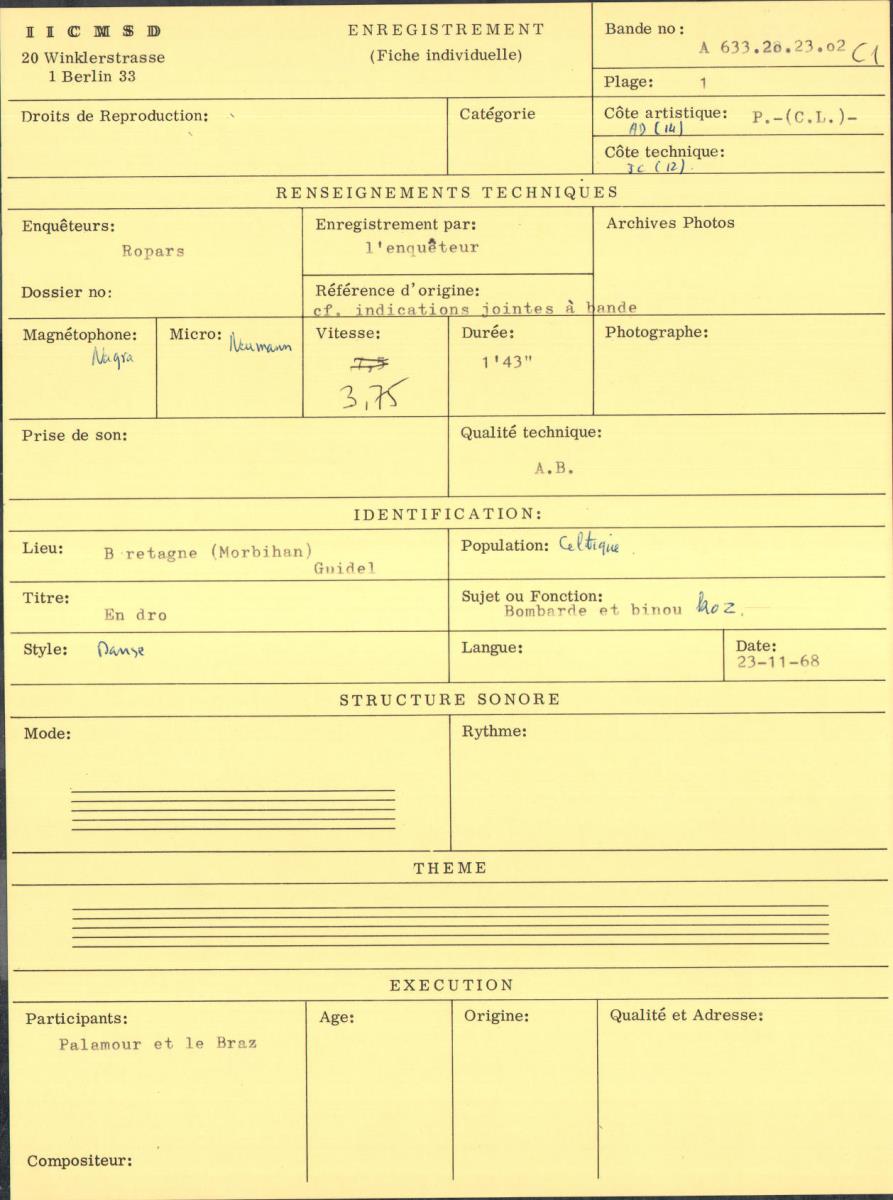 I I C M S D
20 Winklerstrasse
1 Berlin 33
ENREGISTREMENT
(Fiche individuelle)
Bande no :
A 633.20.23.02 C1
Plage: 1
Droits de Reproduction:
Catégorie
Côte artistique: P.-(C.L.)-
AD (14)
Côte technique:
JC (12).
RENSEIGNEMENTS TECHNIQUES
Enquêteurs:
Ropars
Enregistrement par:
l'enquêteur
Archives Photos
Dossier no:
Référence d'origine:
cf. indications jointes à bande
Magnétophone:
Nagra
Micro: Neumann
Vitesse:
7,5
3,75
Durée:
1'43"
Photographe:
Prise de son:
Qualité technique:
A.B.
IDENTIFICATION:
Lieu: B retagne (Morbihan)
Guidel
Population: Celtique.
Titre:
En dro
Sujet ou Fonction:
Bombarde et binou koz.
Style: Danse
Langue:
Date:
23-11-68
STRUCTURE SONORE
Mode:
Rythme:
THEME
EXECUTION
Participants:
Palamour et le Braz
Age:
Origine:
Qualité et Adresse:
Compositeur: